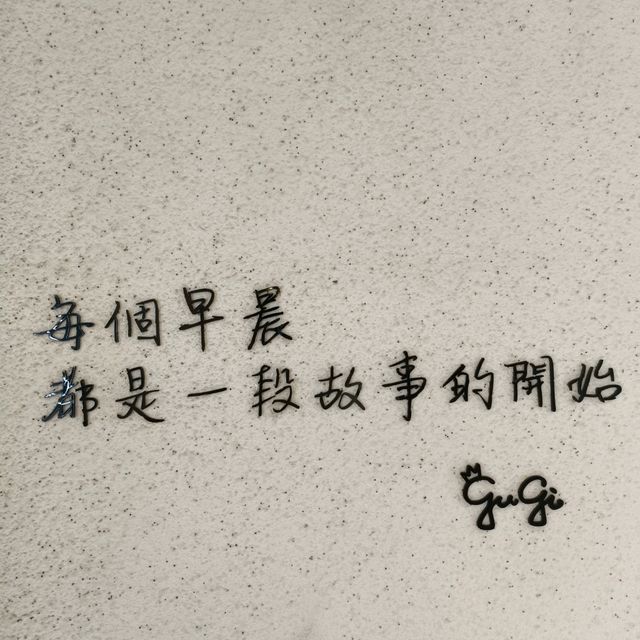 每個早晨
都是一段故事的開始
GuGi